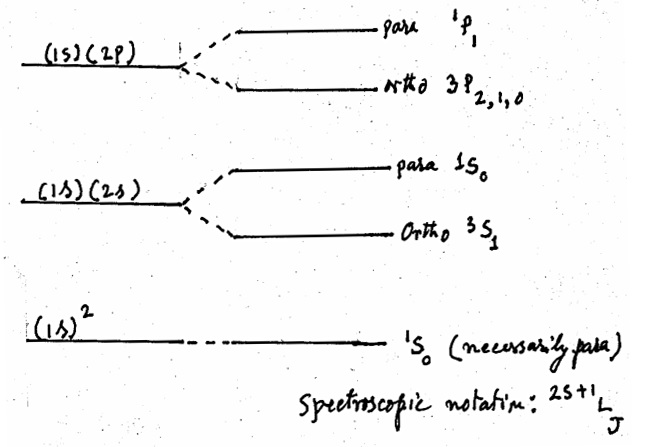 para ¹P₁
(1S)(2P)
ortho 3P₂,₁,₀
para 1S₀
(1s)(2s)
Ortho ³S₁
(1s)²
¹S₀ (necessarily para)
Spectroscopic notation: ²ˢ⁺¹L_J